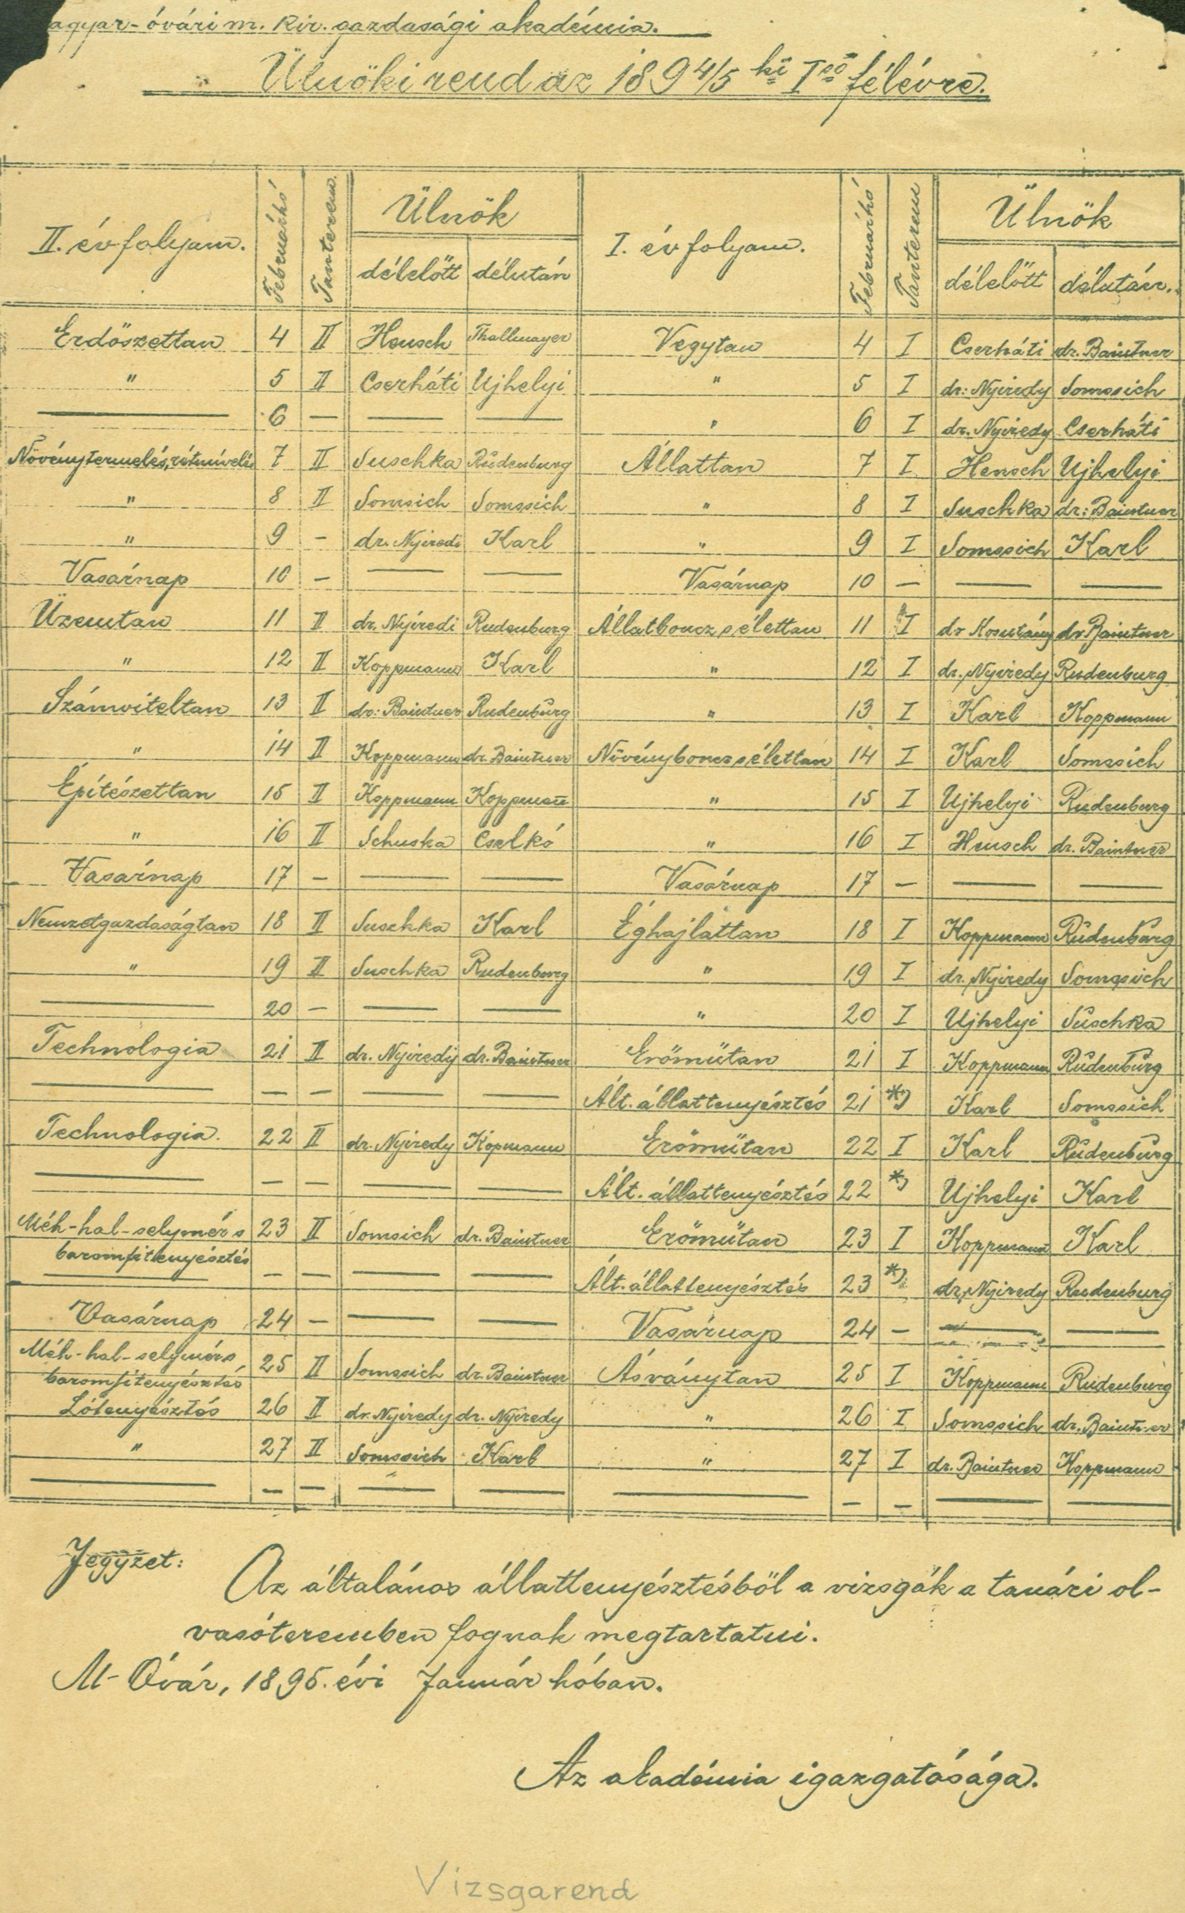 agyar-óvári m. kir. gazdasági akadémia.
Ülnöki rend az 1894/5 ki I ső félévre.
II. évfolyam. Februárhó Tanterem. Ülnök I. évfolyam. Februárhó Tanterem Ülnök
délelőtt délután délelőtt délután.
Erdőszettan 4 II Hensch Thallmayer Vegytan 4 I Cserháti dr. Baintner
" 5 II Cserháti Ujhelyi " 5 I dr. Nyiredy Somssich
— 6 — — — " 6 I dr. Nyiredy Cserháti
Növénytermelés, rétmivelés 7 II Suschka Rudenburg Állattan 7 I Hensch Ujhelyi
" 8 II Somsich Somssich " 8 I Suschka dr: Baintner
" 9 - dr. Nyiredi Karl " 9 I Somssich Karl
Vasárnap 10 — — — Vasárnap 10 — — —
Üzemtan 11 II dr. Nyiredi Rudenburg Állatboncz s élettan 11 I dr Kosutány dr Baintner
" 12 II Koppmann Karl " 12 I dr. Nyiredy Rudenburg
Számviteltan 13 II dr: Baintner Rudenburg " 13 I Karl Koppmann
" 14 II Koppmann dr. Baintner Növényboncz s élettan 14 I Karl Somssich
Épitészettan 15 II Koppmann Koppmann " 15 I Ujhelyi Rudenburg
" 16 II Schuska Cselkó " 16 I Hensch dr. Baintner
Vasárnap 17 — — — Vasárnap 17 — — —
Nemzetgazdaságtan 18 II Suschka Karl Éghajlattan 18 I Koppmann Rudenburg
" 19 II Suschka Rudenburg " 19 I dr. Nyiredy Somssich
— 20 — — — " 20 I Ujhelyi Suschka
Technologia 21 II dr. Nyiredy dr. Baintner Erőműtan 21 I Koppmann Rudenburg
— — — — — Ált. állattenyésztés 21 *) Karl Somssich
Technologia. 22 II dr. Nyiredy Kopmann Erőműtan 22 I Karl Rudenburg
— — — — — Ált. állattenyésztés 22 *) Ujhelyi Karl
Méh-hal-selymér s 23 II Somsich dr. Baintner Erőműtan 23 I Koppmann Karl
baromfitenyésztés
— — — — — Ált. állattenyésztés 23 *) dr. Nyiredy Rudenburg
Vasárnap 24 — — — Vasárnap 24 — — —
Méh-hal-selymér s 25 II Somssich dr. Baintner Ásványtan 25 I Koppmann Rudenburg
baromfitenyésztés
Lótenyésztés 26 II dr. Nyiredy dr. Nyiredy " 26 I Somssich dr. Baintner
" 27 II Somssich Karl " 27 I dr. Baintner Koppmann
— — — — — — — — — —
Jegyzet: Az általános állattenyésztésből a vizsgák a tanári ol-
vasóteremben fognak megtartatni.
M-Óvár, 1895. évi Január hóban.
Az akadémia igazgatósága.
Vizsgarend